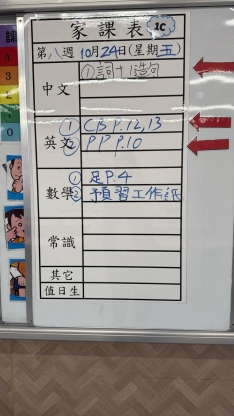 家課表 1C
第八週 10月24日(星期五)
中文 ①詞十 造句
英文 ① CB P.12,13
② PP P.10
數學 ① 足P.4
② 預習工作紙
常識
其它
值日生
4
3
2
1
0